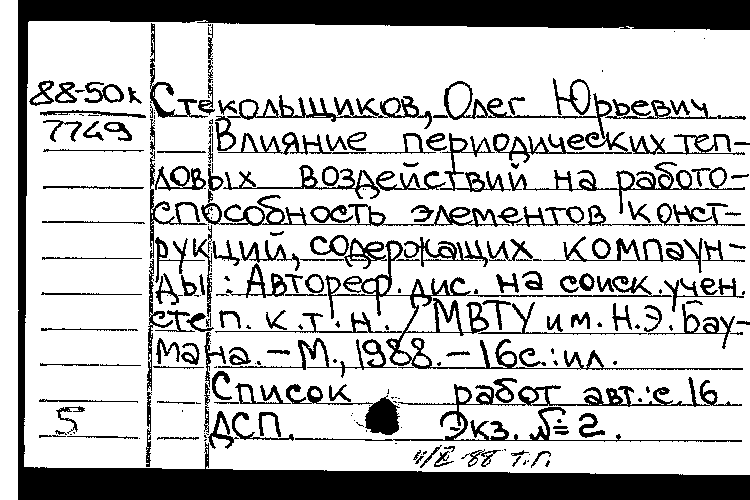 88-50к Стекольщиков, Олег Юрьевич
7749 Влияние периодических теп-
ловых воздействий на работо-
способность элементов конст-
рукций, содержащих компаун-
ды : Автореф. дис. на соиск. учен.
степ. к.т.н. / МВТУ им. Н.Э. Бау-
мана. – М., 1988. – 16с.: ил.
Список работ авт.: с. 16.
5 ДСП. Экз. № 2.
88 т.г.